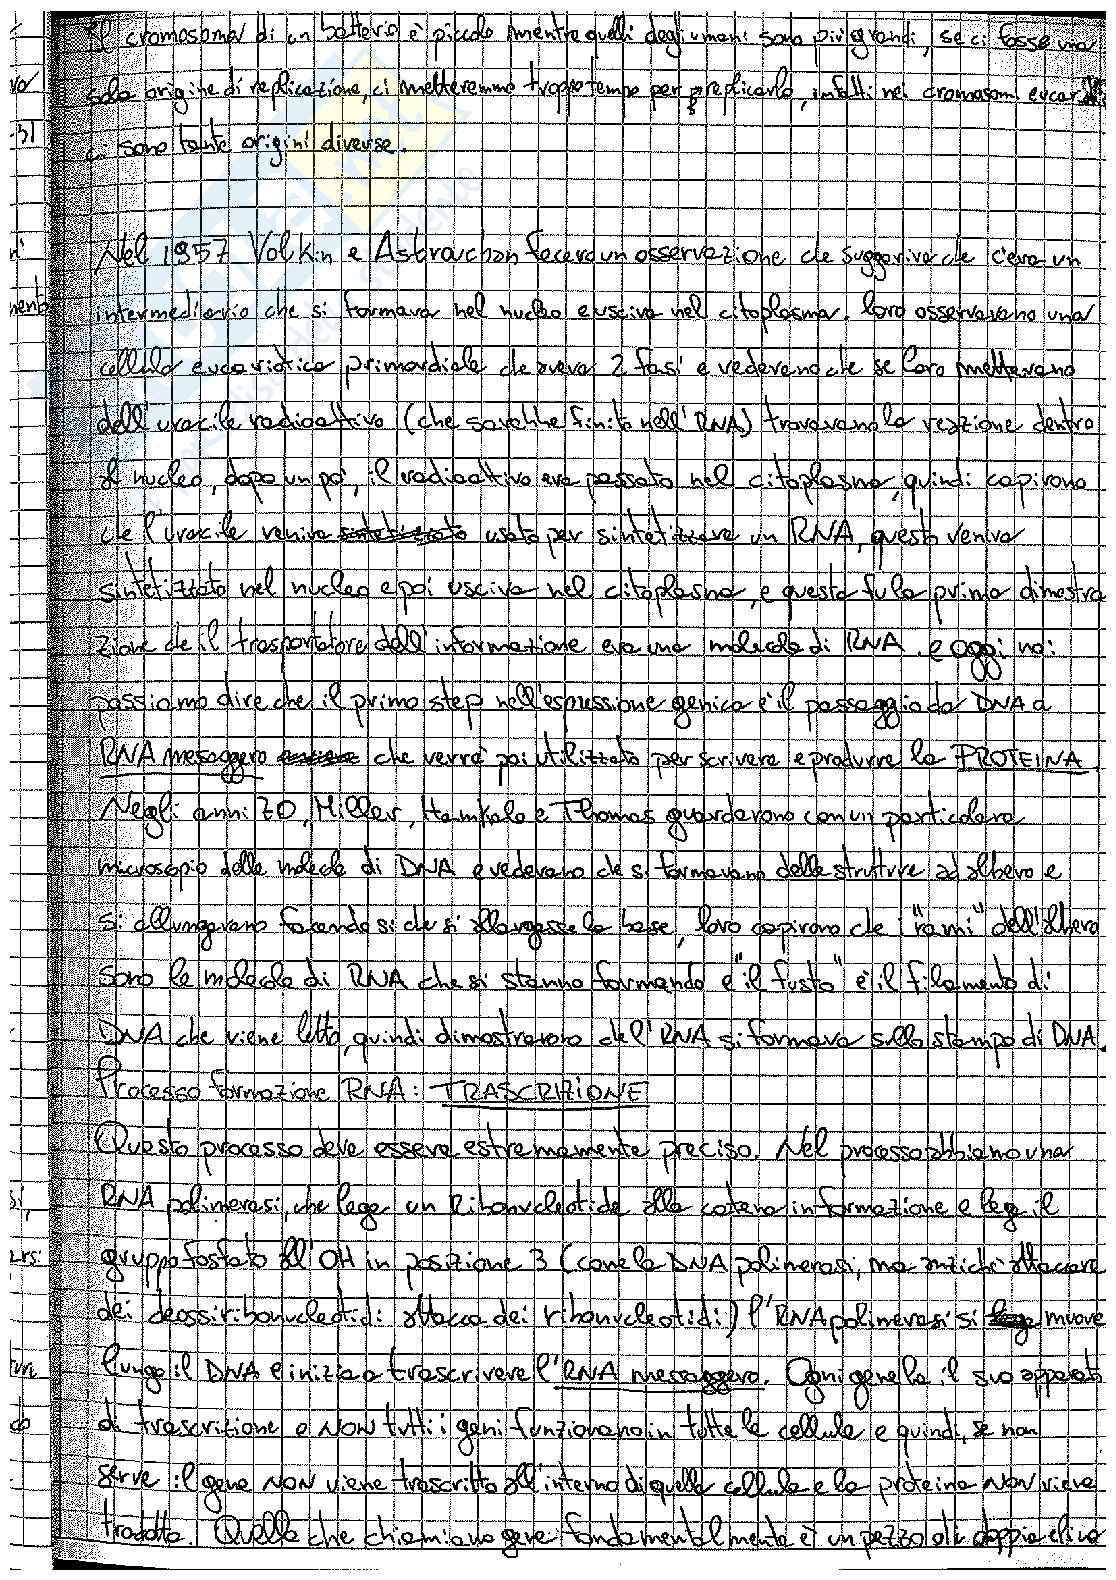 Il cromosoma di un batterio è piccolo mentre quelli degli umani sono più grandi, se ci fosse una
sola origine di replicazione, ci metteremmo troppo tempo per replicarlo, infatti nei cromosomi eucar
ci sono tante origini diverse.
Nel 1957 Volkin e Astrachan fecero un osservazione che suggeriva che c'era un
intermediario che si formava nel nucleo e usciva nel citoplasma. loro osservavano una
cellula eucariotica primordiale che aveva 2 fasi e vedevano che se loro mettevano
dell'uracile radioattivo (che sarebbe finito nell'RNA) trovavano la reazione dentro
al nucleo, dopo un po', il radioattivo era passato nel citoplasma, quindi capirono
che l'uracile veniva usato per sintetizzare un RNA, questo veniva
sintetizzato nel nucleo e poi usciva nel citoplasma, e questa fu la prima dimostra
zione che il trasportatore dell'informazione era una molecola di RNA. e oggi noi
possiamo dire che il primo step nell'espressione genica è il passaggio da DNA a
RNA messaggero che verrà poi utilizzato per scrivere e produrre la PROTEINA
Negli anni 70, Miller, Hamkalo e Thomas guardarono con un particolare
microscopio delle molecole di DNA e vedevano che si formavano delle strutture ad albero e
si allungavano facendo si che si allargasse la base, loro capirono che i "rami" dell'albero
sono le molecole di RNA che si stanno formando e "il fusto" è il filamento di
DNA che viene letto, quindi dimostrarono che l'RNA si formava sullo stampo di DNA.
Processo formazione RNA: TRASCRIZIONE
Questo processo deve essere estremamente preciso. Nel processo abbiamo una
RNA polimerasi, che lega un Ribonucleotide alla catena in formazione e lega il
gruppo fosfato all'OH in posizione 3 (come la DNA polimerasi, ma anziché attaccare
dei deossiribonucleotidi attacca dei ribonucleotidi) l'RNA polimerasi si muove
lungo il DNA e inizia a trascrivere l'RNA messaggero. Ogni gene ha il suo apparato
di trascrizione e NON tutti i geni funzionano in tutte le cellule e quindi, se non
serve il gene NON viene trascritto all'interno di quella cellula e la proteina NON viene
tradotta. Quello che chiamiamo gene fondamentalmente è un pezzo di doppia elica